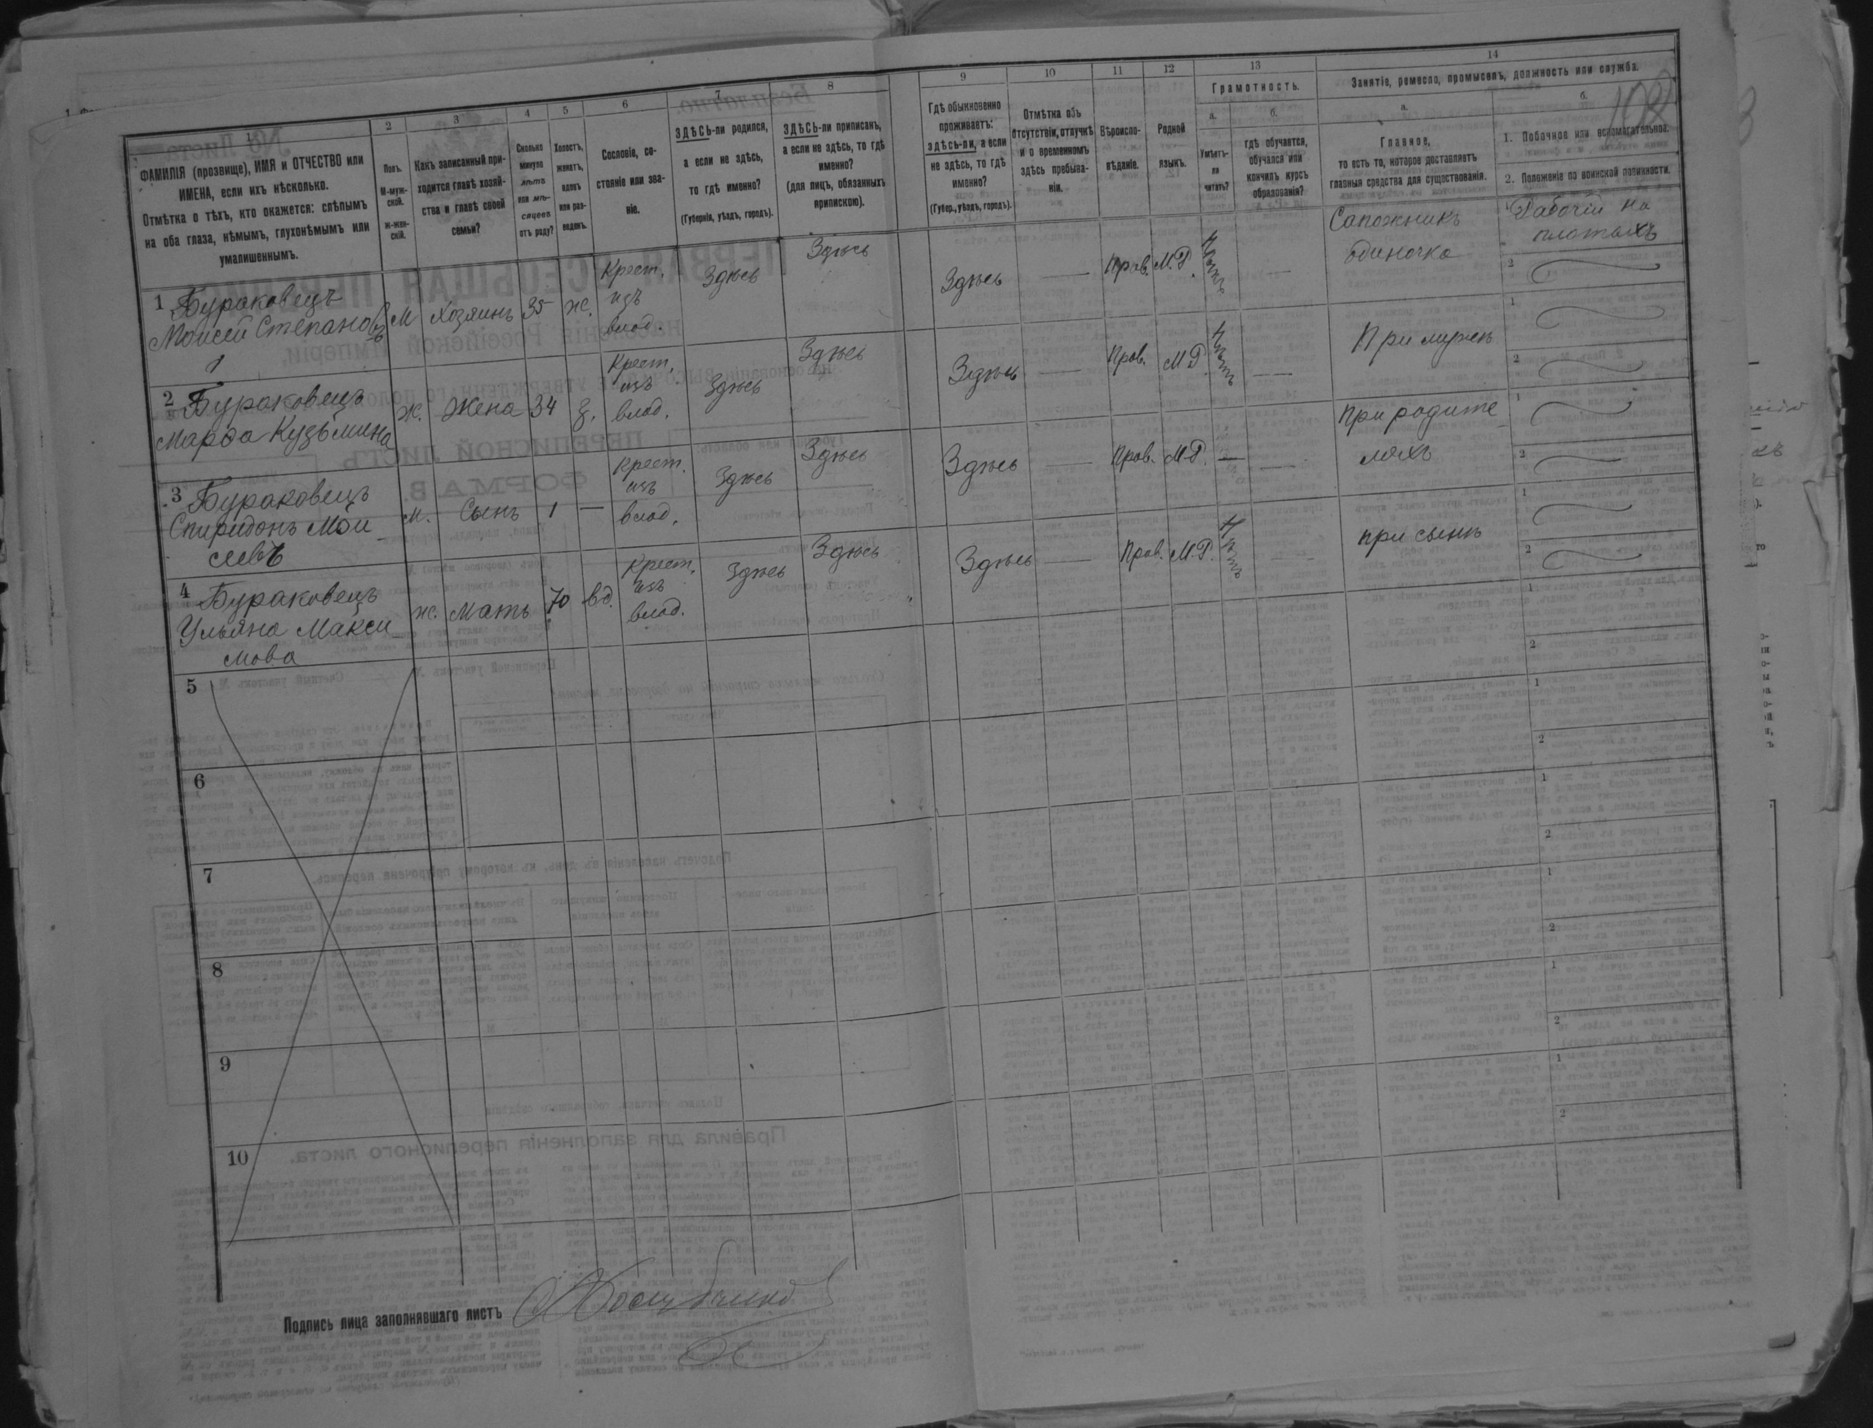 108
1
2
3
4
5
6
7
8
ФАМИЛІЯ (прозвище), ИМЯ и ОТЧЕСТВО или
ИМЕНА, если ихъ нѣсколько.
Отмѣтка о тѣхъ, кто окажется: слѣпымъ
на оба глаза, нѣмымъ, глухонѣмымъ или
умалишеннымъ.
Полъ.
М-муж-
ской.
ж-жен-
скій.
Какъ записанный при-
ходится главѣ хозяй-
ства и главѣ своей
семьи?
Сколько
минуло
лѣтъ
или мѣ-
сяцевъ
отъ роду?
Холостъ,
женатъ,
вдовъ
или раз-
веденъ.
Сословіе, со-
стояніе или зва-
ніе.
ЗДѢСЬ-ли родился,
а если не здѣсь,
то гдѣ именно?
(Губернія, уѣздъ, городъ).
ЗДѢСЬ-ли приписанъ,
а если не здѣсь, то гдѣ
именно?
(для лицъ, обязанныхъ
припискою).
9
10
11
12
13
14
Гдѣ обыкновенно
проживаетъ:
здѣсь-ли, а если
не здѣсь, то гдѣ
именно?
(Губер., уѣздъ, городъ).
Отмѣтка объ
отсутствіи, отлучкѣ
и о временномъ
здѣсь пребыва-
ніи.
Вѣроиспо-
вѣданіе.
Родной
языкъ.
Грамотность.
а.
Умѣетъ-
ли
читать?
б.
гдѣ обучается,
обучался или
кончилъ курсъ
образованія?
Занятіе, ремесло, промыселъ, должность или служба.
а.
Главное,
то есть то, которое доставляетъ
главныя средства для существованія.
б.
1. Побочное или вспомогательное.
2. Положеніе по воинской повинности.
1 Бураковецъ
Моисей Степановъ
М Хозяинъ 35 ж.
Крест.
изъ
влад.
Здѣсь Здѣсь
Здѣсь — Прав. М.Р. Нѣтъ —
Сапожникъ
одиночка
1 Рабочій на
плотахъ
2
2 Бураковецъ
Марѳа Кузьмина
Ж. Жена 34 з.
Крест.
изъ
влад.
Здѣсь Здѣсь
Здѣсь — Прав. М.Р. Нѣтъ —
При мужѣ
1
2
3 Бураковецъ
Спиридонъ Мои-
сеевъ
м. Сынъ 1 —
Крест.
изъ
влад.
Здѣсь Здѣсь
Здѣсь — Прав. М.Р. — —
При родите-
ляхъ
1
2
4 Бураковецъ
Ульяна Макси-
мова
ж. Мать 70 вд.
Крест.
изъ
влад.
Здѣсь Здѣсь
Здѣсь — Прав. М.Р. Нѣтъ —
при сынѣ
1
2
5
1
2
6
1
2
7
1
2
8
1
2
9
1
2
10
1
2
Подпись лица заполнявшаго листъ